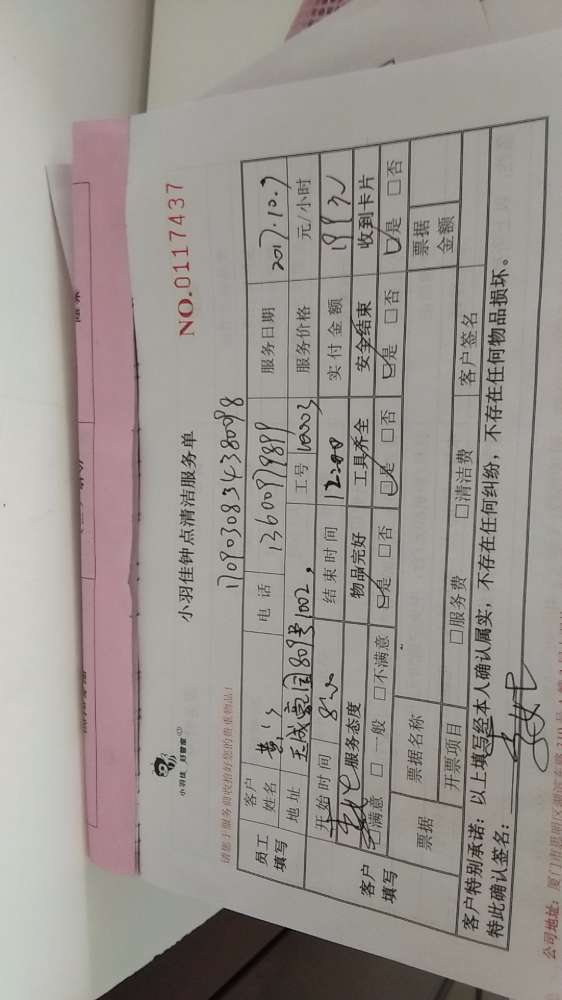 小羽佳 好管家
小羽佳钟点清洁服务单
NO.0117437
170903083438098
请您于服务前收拾好您的贵重物品!
员工填写 客户姓名 电话 13600979899 服务日期 2017.10.9
地址 天成花园809号1002, 工号 10003 服务价格 元/小时
开始时间 8:00 结束时间 12:00 实付金额
客户填写 服务态度 物品完好 工具齐全 安全结束 收到卡片
□满意 □一般 □不满意 □是 □否 □是 □否 □是 □否 □是 □否
票据 票据名称 票据金额
开票项目 □服务费 □清洁费 客户签名
客户特别承诺:以上填写经本人确认属实,不存在任何纠纷,不存在任何物品损坏。
特此确认签名:
公司地址:厦门市思明区